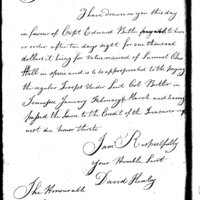 I have drawn on you this day
in favour of Capt Edward Butler payable to him
or order after ten days sight for one thousand
dollars it being for reimbursed of Samuel
Hall in specie and is to be appropriated to the paying
the regular troops Under Lieut Col Butler in
Tennessee January February & March and having
passed the Same to the Credit of the
I am Respectfully
Your Humble Servt
David Henley
The Honourable